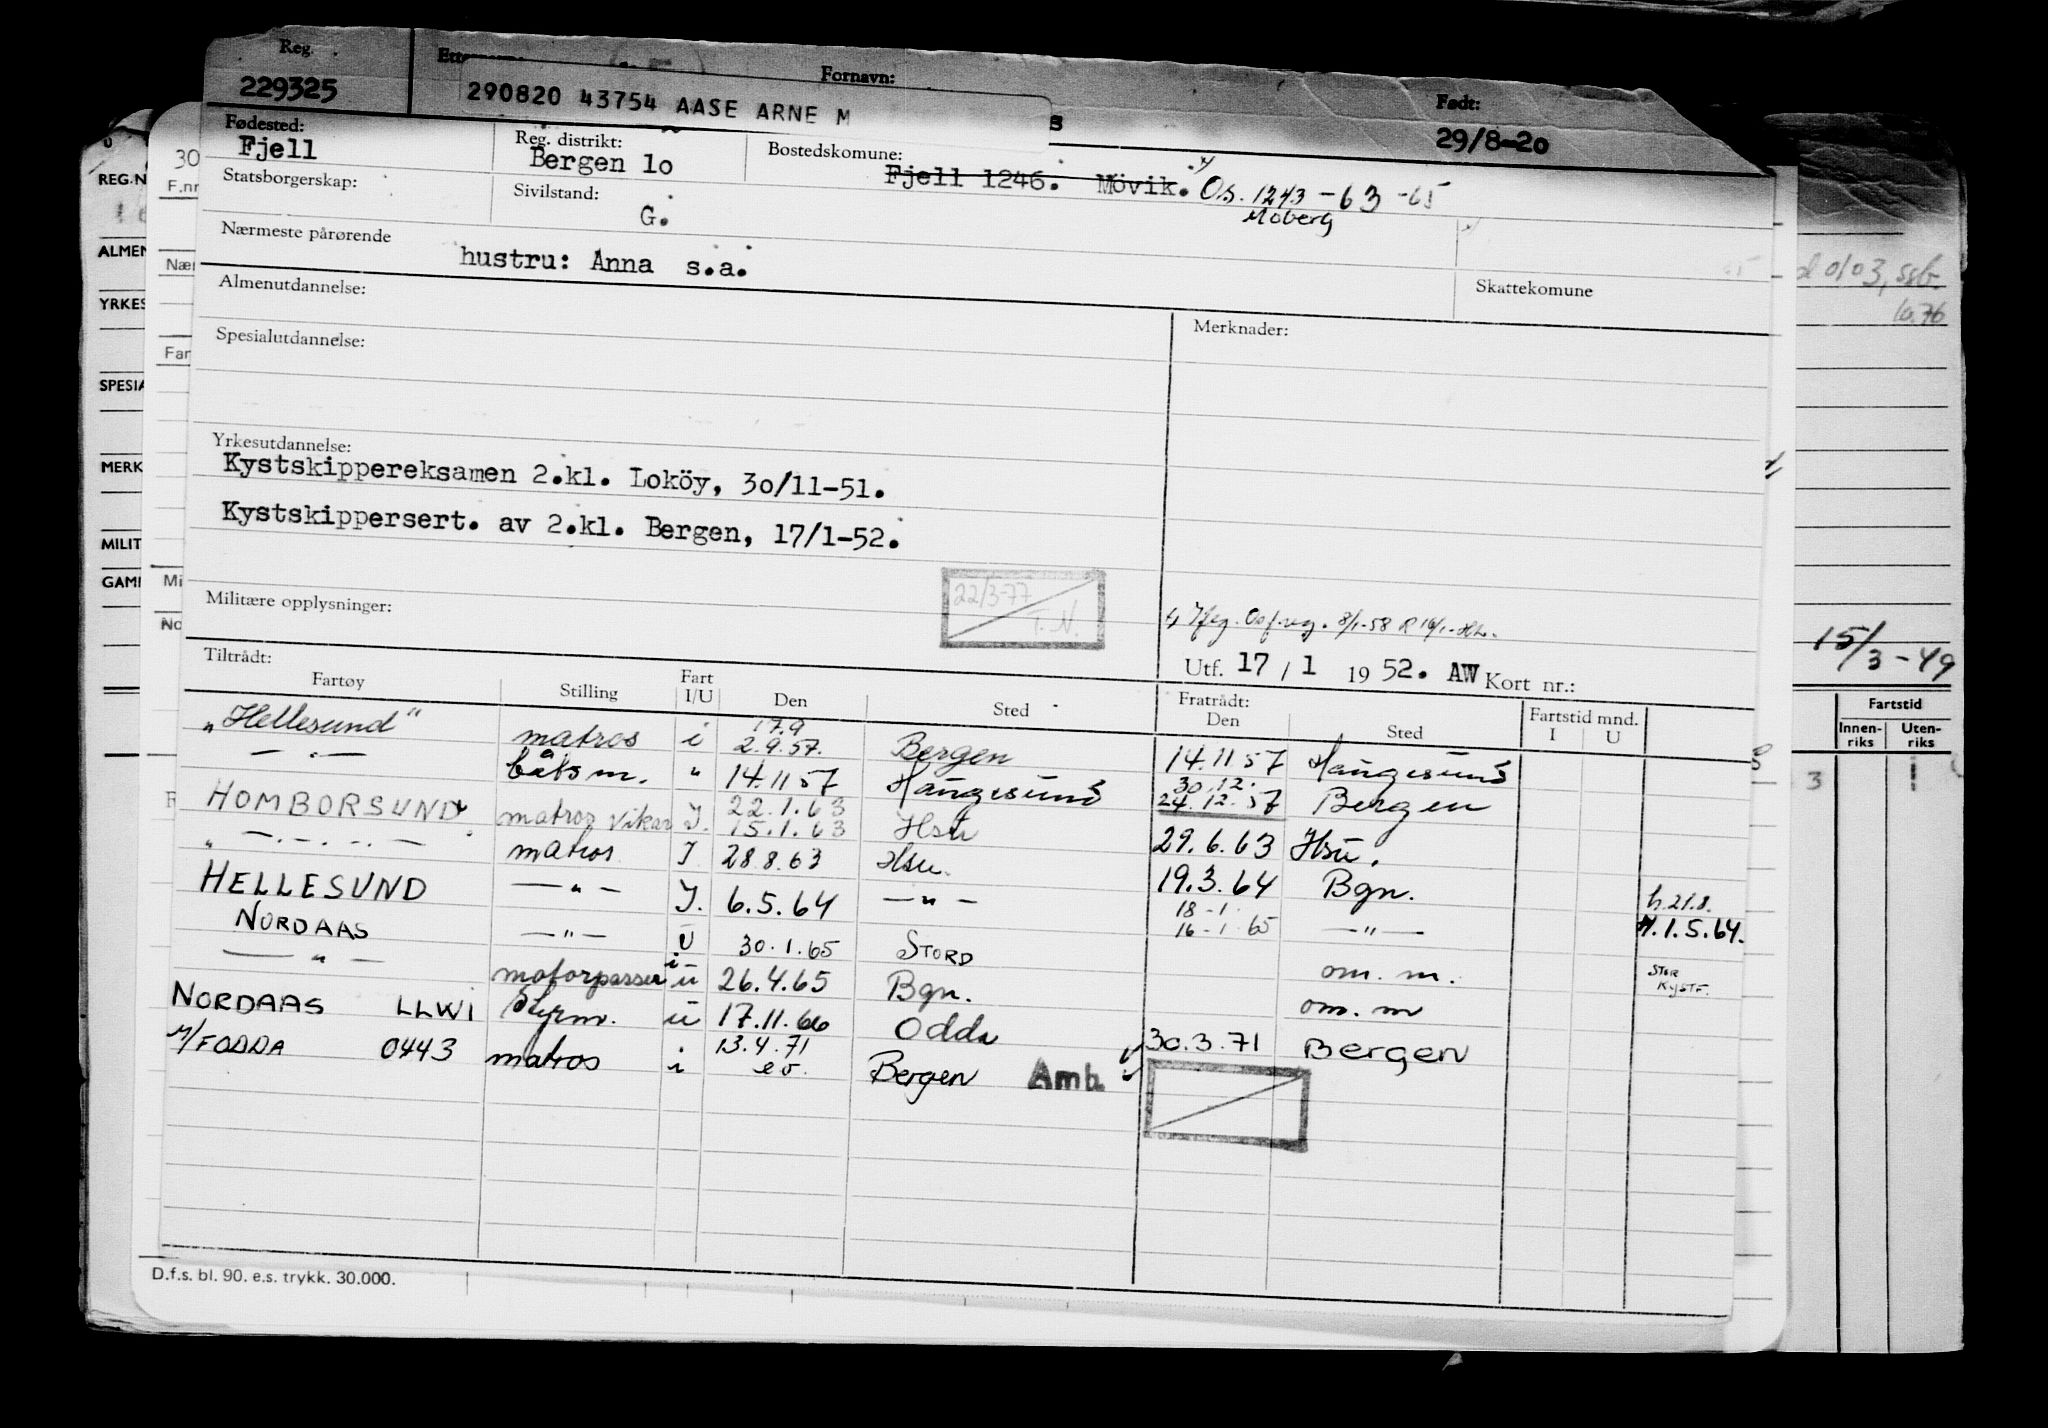 Reg. Fornavn: Født:
229325 290820 43754 AASE ARNE M 29/8-20
Fødested: Reg. distrikt: Bostedskomune:
Fjell Bergen lo Fjell 1246. Mövik. Os. 1243 - 63 - 65
Moberg
Statsborgerskap: Sivilstand:
G.
Nærmeste pårørende
hustru: Anna s.a.
Almenutdannelse: Skattekomune
Spesialutdannelse: Merknader:
Yrkesutdannelse:
Kystskippereksamen 2.kl. Loköy, 3o/11-51.
Kystskippersert. av 2.kl. Bergen, 17/1-52.
22/3-77
T.N.
Militære opplysninger:
Utf. 17 / 1 19 52. AW Kort nr.:
Tiltrådt: Fratrådt:
Fartøy Stilling Fart I/U Den Sted Den Sted Fartstid mnd. I U
17.9
"Hellesund" matros i 2.9.57. Bergen 14.11 57 Haugesund
— . — båtsm. " 14.11 57 Haugesund 30.12. 24.12.57 Bergen
HOMBORSUND matros vikar I. 22.1.63 15.1.63 Hsu 29.6.63 Hsu.
" — . — . — . — matros I 28.8.63 Hsu. 19.3.64 Bgn. h.21.8.
HELLESUND — " — I. 6.5.64 — " — 18-1. 16-1.65 — " — H.1.5.64.
NORDAAS — " — U 30.1.65 STORD om. m. STOR KYSTF.
— " — motorpasser i u 26.4.65 Bgn. om. m
NORDAAS LLWI Styrm. u 17.11.66 Odda 30.3.71 Bergen
M/FODDA 0443 matros i 13.4.71 ev. Bergen Amb.
D.f.s. bl. 90. e.s. trykk. 30.000.
30
F.nr
REG.N
ALMEN
Nær
YRKES
Far
SPESIA
MERK
MILIT
GAML
Mi
No
10.76
15/3-49
Fartstid
Innen-riks Uten-riks
3